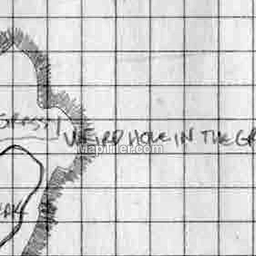 GRASS
WEIRD HOLE IN THE GR
Mapitfier.com